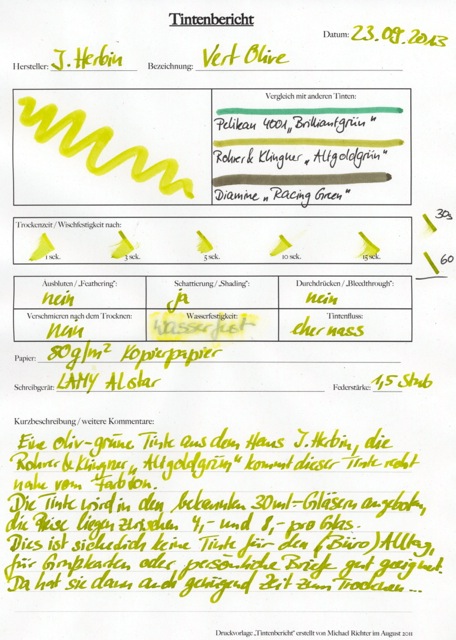 Tintenbericht
Datum: 23.09.2013
Hersteller: J. Herbin Bezeichnung: Vert Olive
Vergleich mit anderen Tinten:
Pelikan 4001 „Brilliantgrün"
Rohrer & Klingner „Altgoldgrün"
Diamine „Racing Green"
Trockenzeit / Wischfestigkeit nach:
1 sek. 3 sek. 5 sek. 10 sek. 15 sek.
30s
60
Ausbluten / „Feathering": Schattierung / „Shading": Durchdrücken / „Bleedthrough":
nein ja nein
Verschmieren nach dem Trocknen: Wasserfestigkeit: Tintenfluss:
Nein Wasserfest eher nass
Papier: 80g/m² Kopierpapier
Schreibgerät: LAMY ALstar Federstärke: 1,5 Stub
Kurzbeschreibung / weitere Kommentare:
Eine oliv-grüne Tinte aus dem Haus J. Herbin, die
Rohrer & Klingner „Altgoldgrün" kommt dieser Tinte recht
nahe vom Farbton.
Die Tinte wird in den bekannten 30ml-Gläsern angeboten,
die Preise liegen zwischen 4,- und 8,- pro Glas.
Dies ist sicherlich keine Tinte für den (Büro) Alltag,
für Grußkarten oder persönliche Briefe gut geeignet.
Da hat sie dann auch genügend Zeit zum Trocknen...
Druckvorlage „Tintenbericht" erstellt von Michael Richter im August 2011